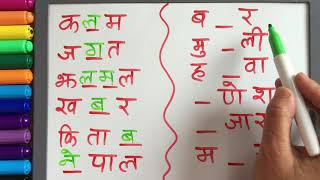 क ल म
ज ग त
झ ल म ल
ख ब र
कि ता ब
ने पा ल
ब _ र
मु _ ली
ह _ वा
_ णे श
_ जा
म _